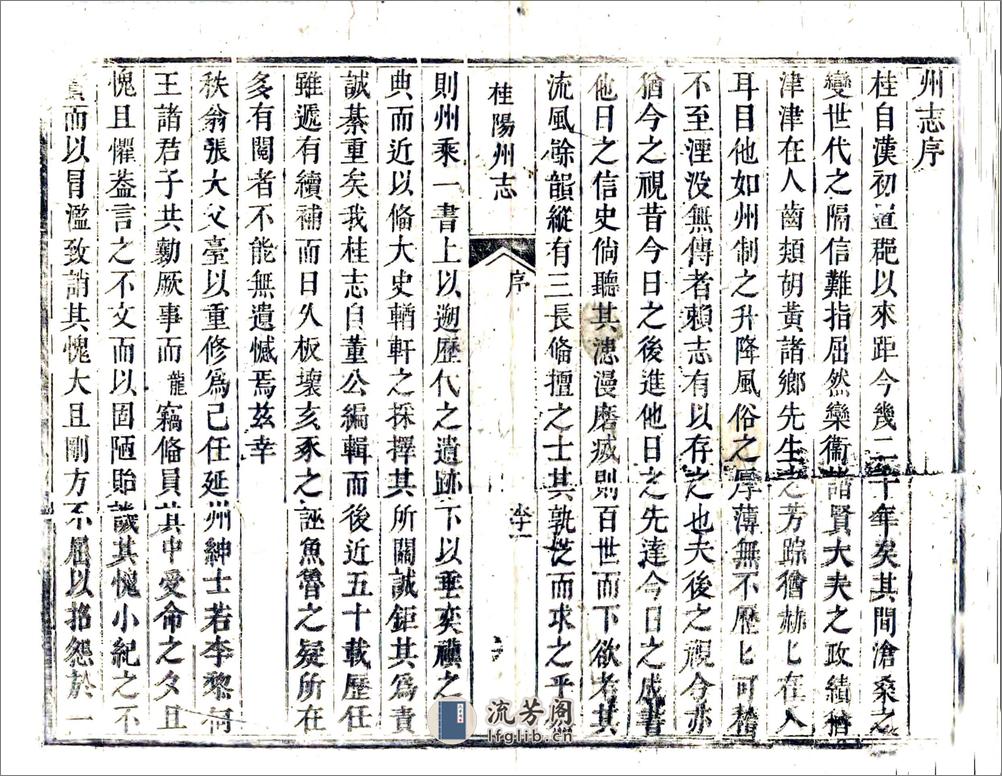 州志序
桂自漢初置郡以來距今幾二千年矣其間滄桑之
變世代之隔信難指屈然欒衞諸賢大夫之政績猶
津津在人齒頰胡黃諸鄉先生之芳踪猶赫匕在人
耳目他如州制之升降風俗之厚薄無不歷匕可稽
不至湮没無傳者賴志有以存之也夫後之視今亦
猶今之視昔今日之後進他日之先達今日之成書
他日之信史倘聽其漶漫磨滅則百世而下欲考其
流風餘韻縱有三長俻擅之士其孰從而求之乎
桂陽州志
序
則州乘一書上以遡歷代之遺跡下以垂奕禩之
典而近以俻大史輶軒之採擇其所關誠鉅其爲責
誠綦重矣我桂志自董公編輯而後近五十載歷任
雖遞有續補而日久板壞亥豕之誣魚魯之疑所在
多有閱者不能無遺憾焉茲幸
秩翁張大父臺以重修爲己任延州紳士若李黎何
王諸君子共勷厥事而龍竊俻員其中受命之夕且
愧且懼葢言之不文而以固陋貽譏其愧小紀之不
實而以冒濫致誚其愧大且剛方不屈以招怨於一
流芳阁
lfglib.cn